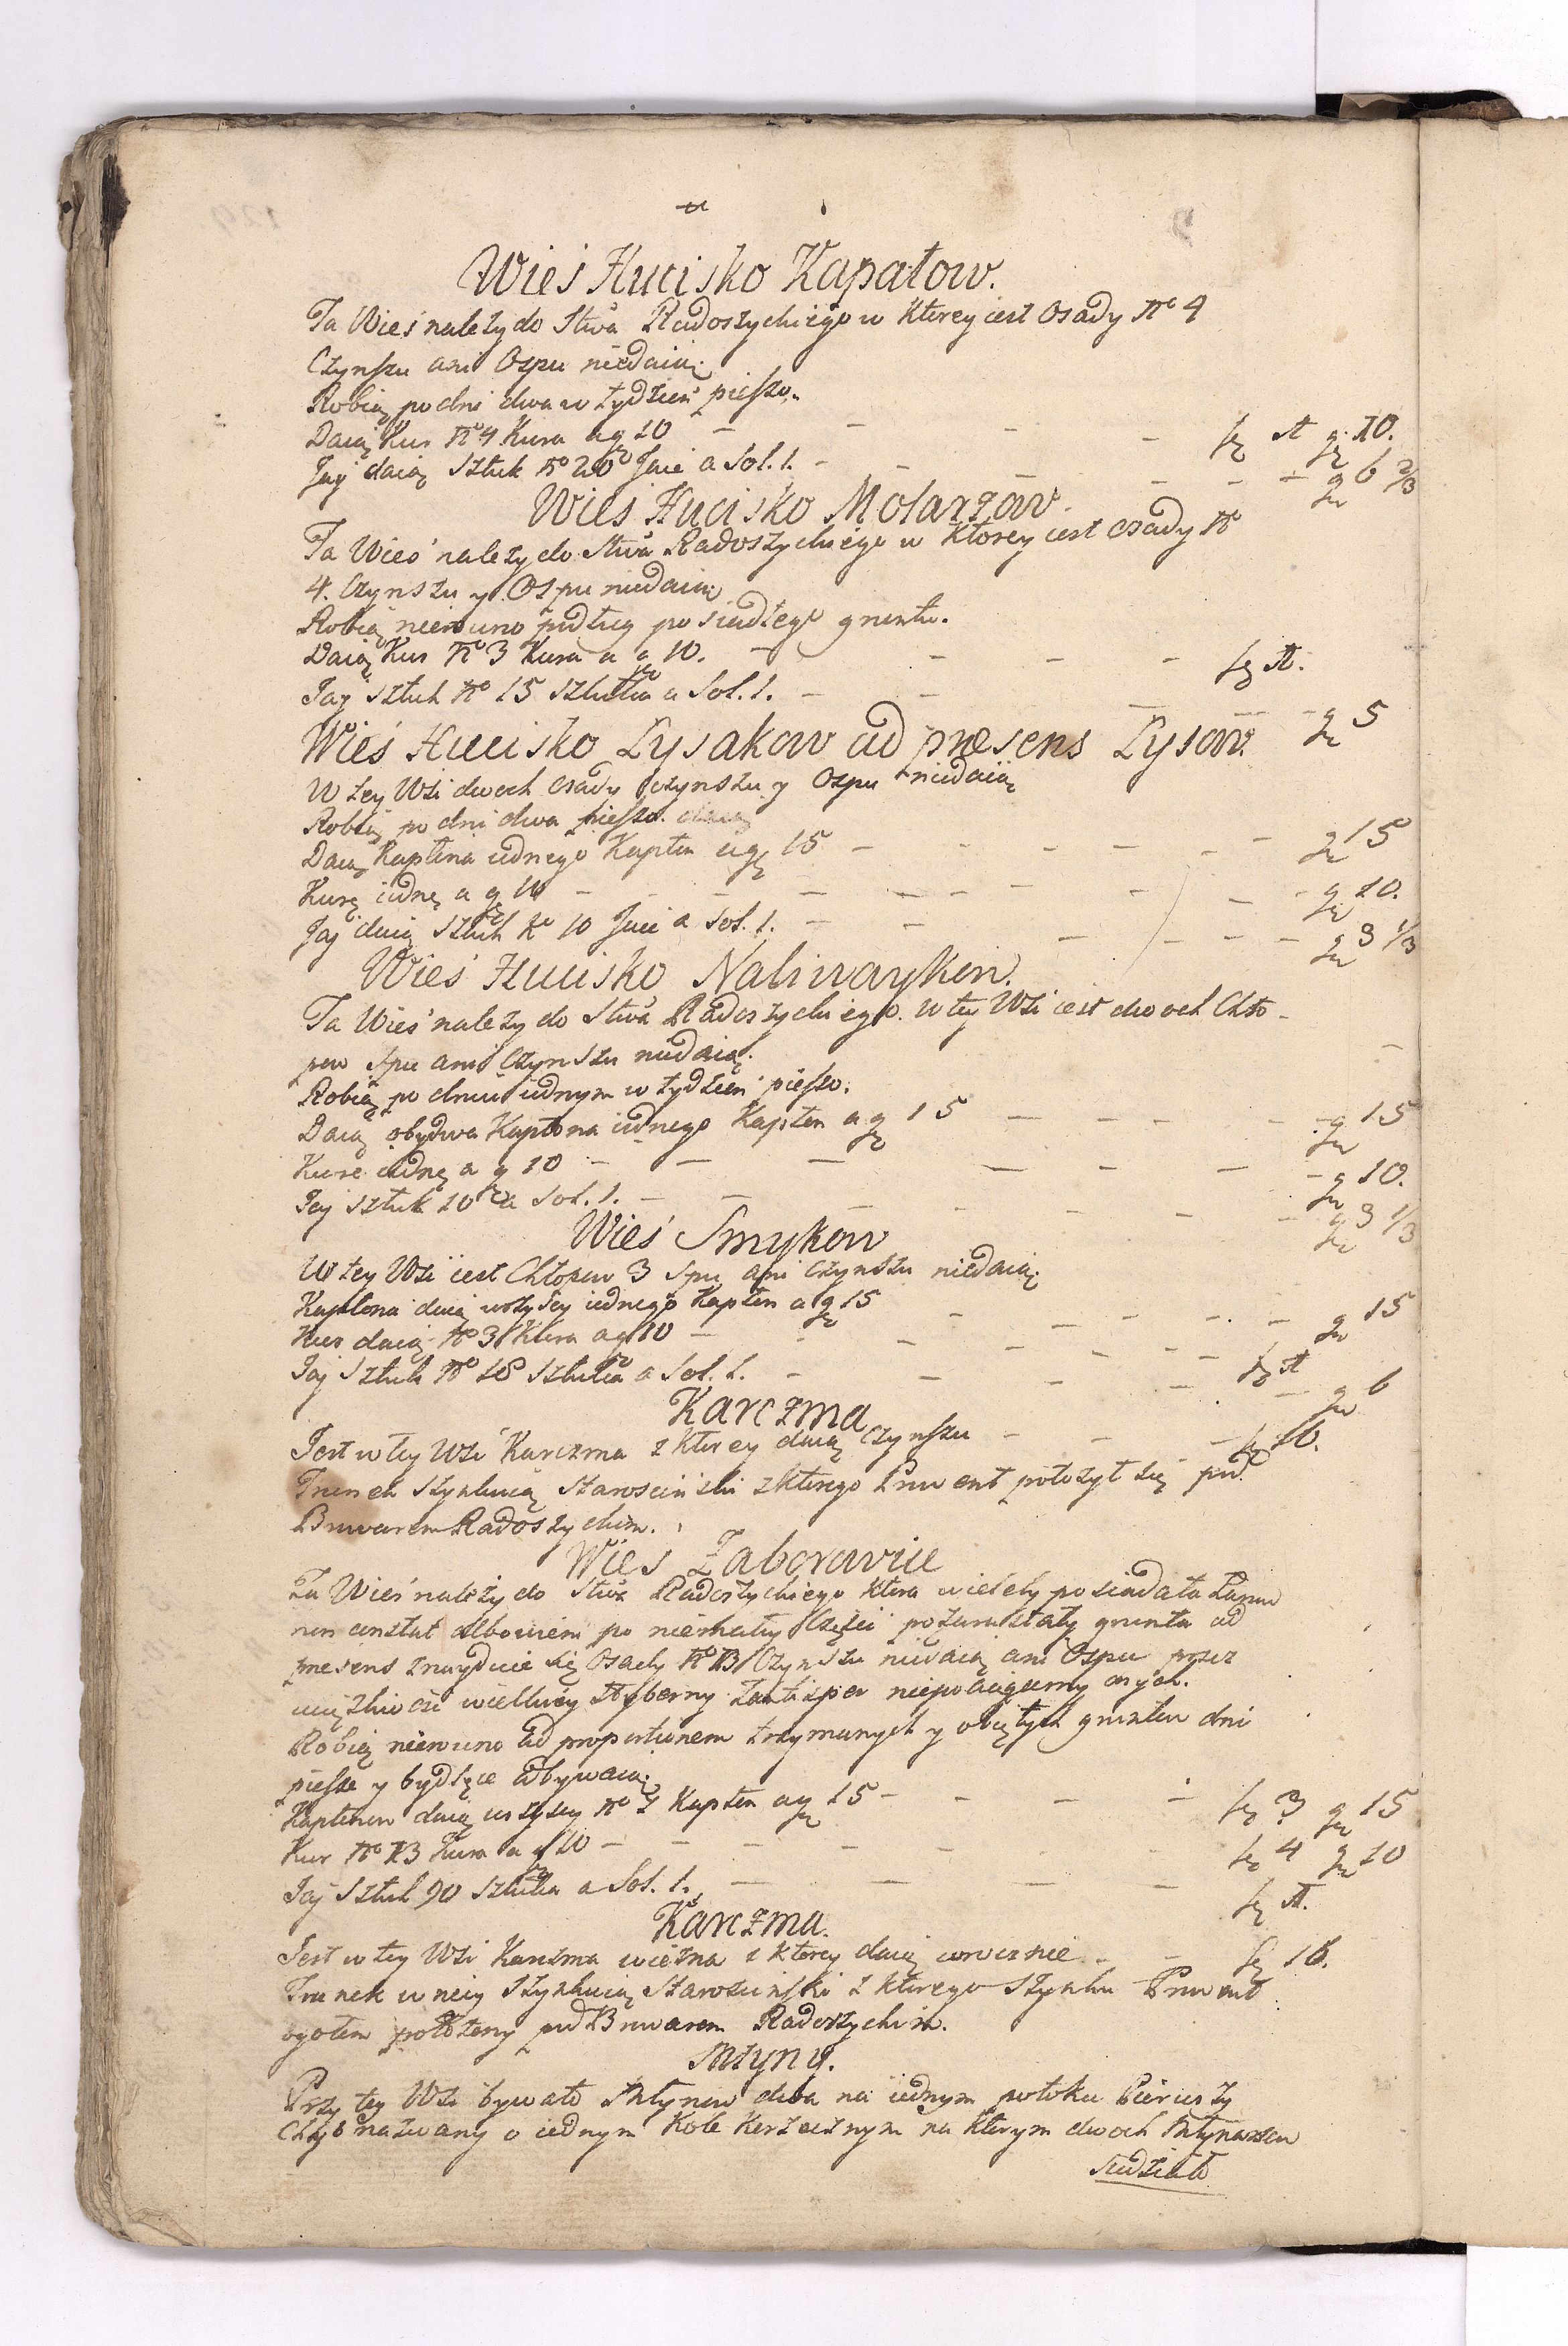 Wieś Hucisko Kapałow.
Ta Wieś należy do Stwa Radoszyckiego w ktorey iest Osady No 4
Czynszu ani Ospu niedaią.
Robią po dni dwa w tydzień pieszo.
Daią Kur No 4 Kura a gr 10 — — — — fl 1 gr 10.
Jay daią Sztuk No 20 Jaie a Sol. 1. — — — — gr 6 2/3
Wieś Hucisko Molarzow
Ta Wieś należy do Stwa Radoszyckiego w ktorey iest osady No
4. Czynszu y Ospu niedaią
Robią nierowno podług posiadłego gruntu.
Daią Kur No 3 Kura a gr 10. — — — — fl 1.
Jay sztuk No 15 sztuka a Sol. 1. — — — — gr 5
Wieś Hucisko Łysakow ad presens Łysow.
W tey Wsi dwoch osady czynszu y Ospu niedaią
Robią po dni dwa pieszo.
Daią Kapłona iednego Kapłon a gr 15 — — — — gr 15
Kurę iednę a gr 10 — — — — gr 10.
Jay daią Sztuk No 10 Jaie a Sol. 1. — — — — gr 3 1/3
Wieś Hucisko Naliwaykow.
Ta Wieś należy do Stwa Radoszyckiego. w tey Wsi iest dwoch Chło-
pow Spu ani Czynszu niedaią.
Robią po dniu iednym w tydzień pieszo.
Daią obydwa Kapłona iednego Kapłon a gr 15 — — — — gr 15
Kurę iednę a gr 10 — — — — gr 10.
Jay sztuk 10 a Sol. 1. — — — — gr 3 1/3
Wieś Smykow
W tey Wsi iest Chłopow 3 Spu ani czynszu niedaią
Kapłona daią wszyscy iednego Kapłon a gr 15 — — — — gr 15
Kur daią No 3 Kura a gr 10 — — — — fl 1
Jay Sztuk No 18 Sztuka a Sol. 1. — — — — gr 6
Karczma
Jest w tey Wsi Karczma z ktorey daią Czynszu — — — fl 16.
Trunek szynkuią Starosciński z ktorego Prowent położył się pod
Browarem Radoszyckim.
Wieś Zaborowice
Ta Wieś należy do Stwa Radoszyckiego ktora wiele by posiadała Łanow
non constat albowiem po niemałey Części pozarastały grunta ad
presens znayduie się Osady No 13 Czynszu niedaią ani Ospu przez
uciążliwość wielkiey Hyberny zantisper niepociągamy onych.
Robią nierowno ad proportionem trzymanych y obiętych gruntow dni
piesze y bydlęce odbywaią
Kapłonow daią wszyscy No 7 Kapłon a gr 15 — — — — fl 3 gr 15
Kur No 13 Kura a gr 10 — — — — fl 4 gr 10
Jay Sztuk 90 Sztuka a Sol. 1. — — — — fl 1.
Karczma.
Jest w tey Wsi Karczma wiezna z ktorey daią corocznie — — fl 16.
Trunek w niey Szynkuią Starosciński z ktorego Szynku Prowent
ogołem położony pod Browarem Radoszyckim.
Młyny.
Przy tey Wsi bywało Młynow dwa na iednym potoku Pierwszy
Chyb nazwany o iednym Kole Korzecznym na ktorym dwoch Młynarzow
siedziało